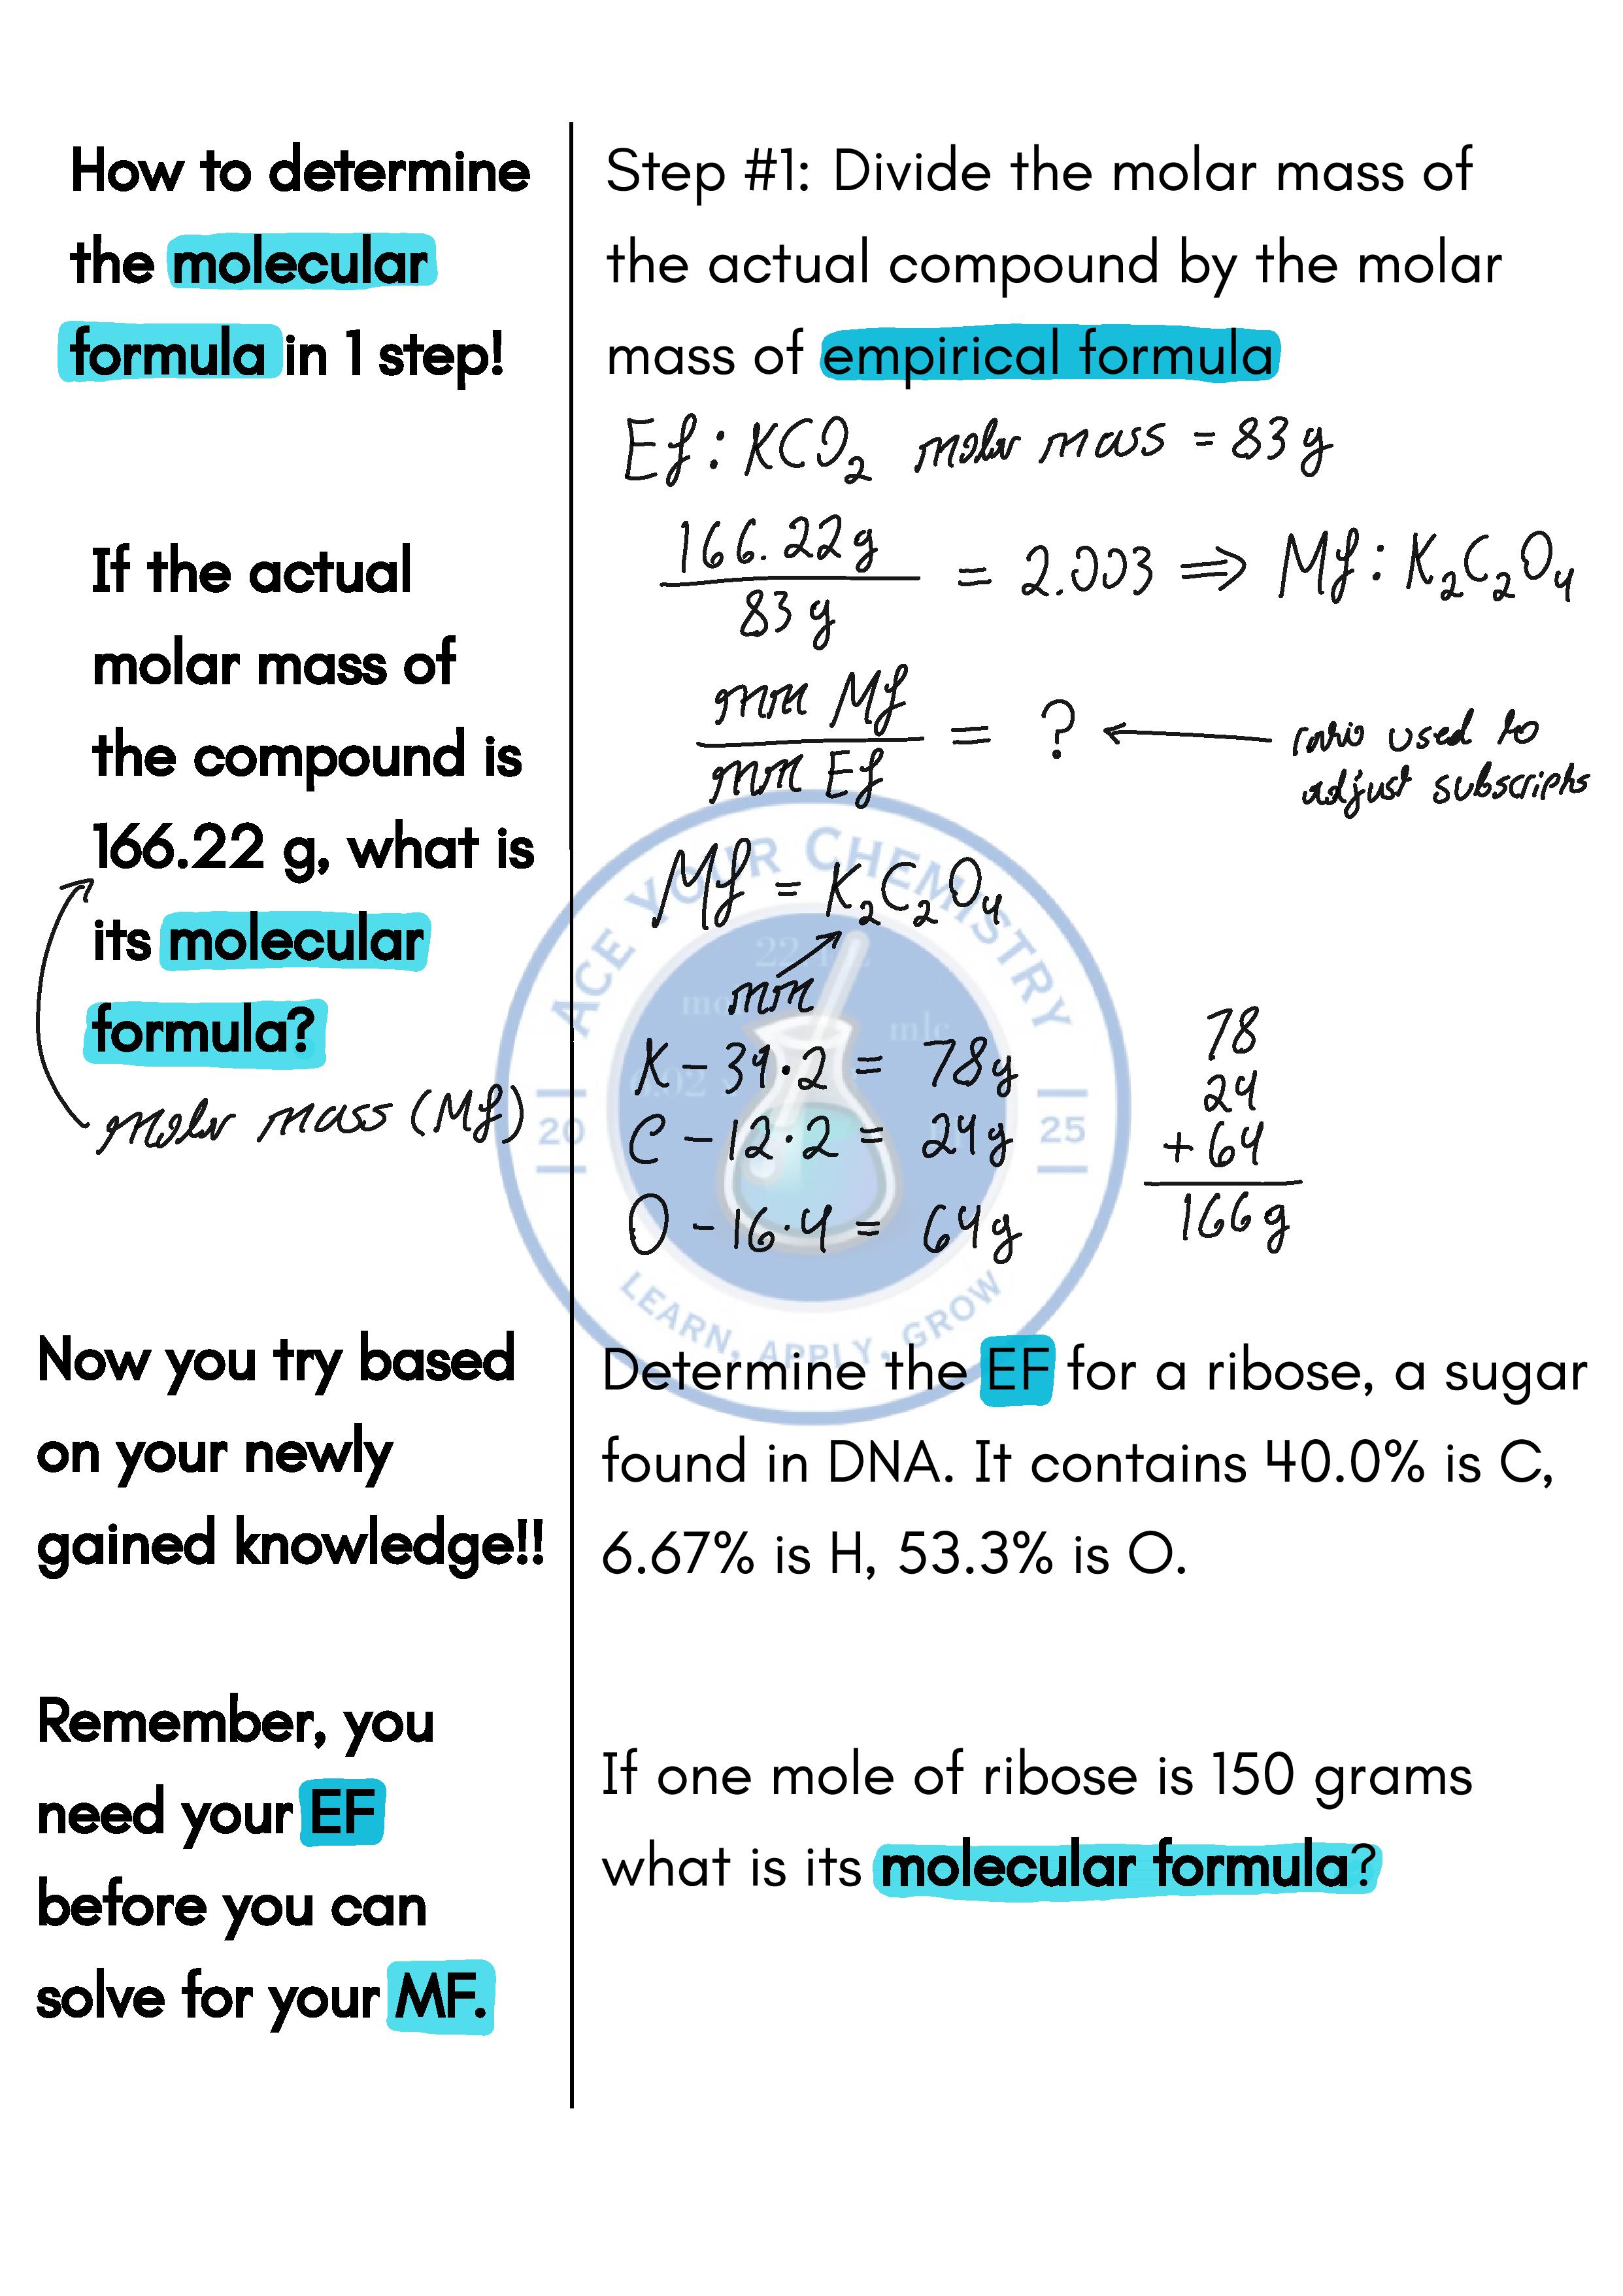 How to determine
the molecular
formula in 1 step!
If the actual
molar mass of
the compound is
166.22 g, what is
its molecular
formula?
molar mass (Mf)
Now you try based
on your newly
gained knowledge!!
Remember, you
need your EF
before you can
solve for your MF.
Step #1: Divide the molar mass of
the actual compound by the molar
mass of empirical formula
Ef: KCO₂ molar mass = 83 g
166.22 g
83 g
= 2.003 ⇒ Mf: K₂C₂O₄
mm Mf
mm Ef
= ? ← ratio used to
adjust subscripts
Mf = K₂C₂O₄
mm
K - 39·2 = 78g
C - 12·2 = 24g
O - 16·4 = 64g
78
24
+64
166 g
ACE YOUR CHEMISTRY
20
25
LEARN, APPLY, GROW
Determine the EF for a ribose, a sugar
found in DNA. It contains 40.0% is C,
6.67% is H, 53.3% is O.
If one mole of ribose is 150 grams
what is its molecular formula?